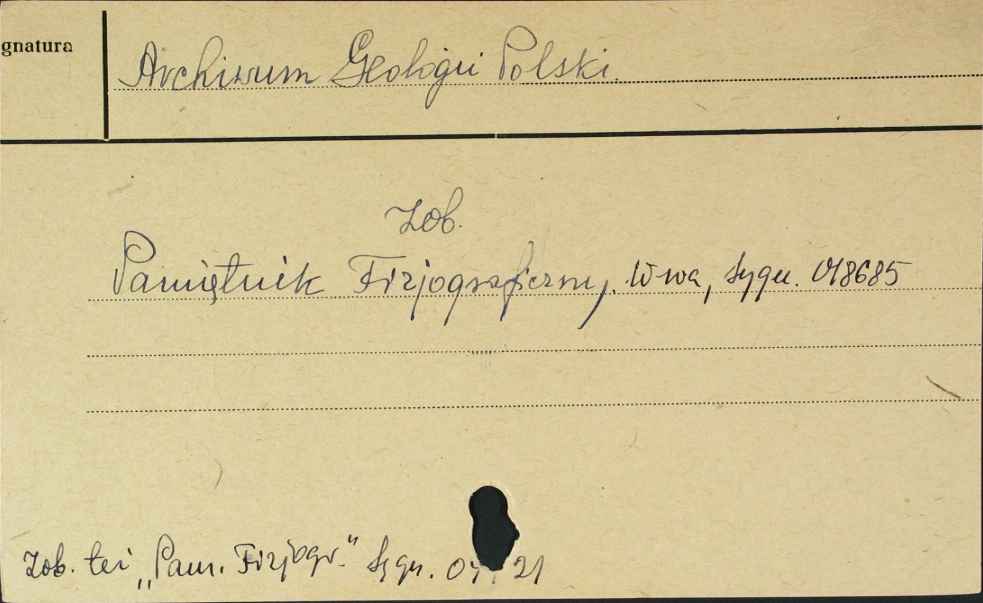 gnatura
Archiwum Geologii Polski.
Zob.
Pamiętnik Fizjograficzny. W-wa, Sygn. 018685
Zob. też „Pam. Fizjogr." Sygn.